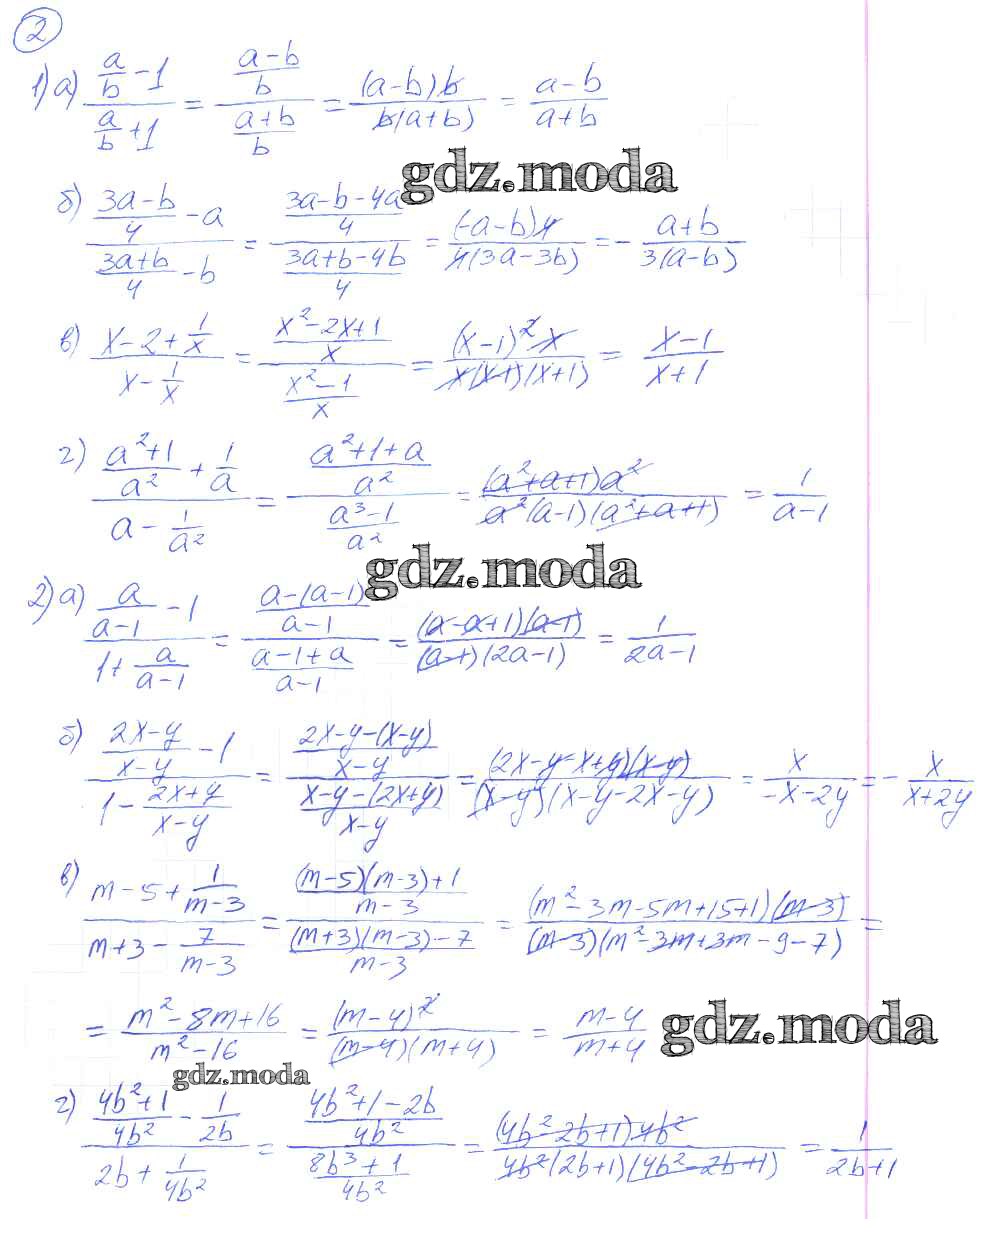 2
1) а) (a/b - 1)/(a/b + 1) = ((a-b)/b)/((a+b)/b) = ((a-b)b)/(b(a+b)) = (a-b)/(a+b)
gdz.moda
б) ((3a-b)/4 - a)/((3a+b)/4 - b) = ((3a-b-4a)/4)/((3a+b-4b)/4) = ((-a-b)4)/(4(3a-3b)) = - (a+b)/(3(a-b))
в) (x-2+1/x)/(x-1/x) = ((x²-2x+1)/x)/((x²-1)/x) = ((x-1)²x)/(x(x-1)(x+1)) = (x-1)/(x+1)
г) ((a²+1)/a² + 1/a)/(a - 1/a²) = ((a²+1+a)/a²)/((a³-1)/a²) = ((a²+a+1)a²)/(a²(a-1)(a²+a+1)) = 1/(a-1)
gdz.moda
2) а) (a/(a-1) - 1)/(1 + a/(a-1)) = ((a-(a-1))/(a-1))/((a-1+a)/(a-1)) = ((a-a+1)(a-1))/((a-1)(2a-1)) = 1/(2a-1)
б) ((2x-y)/(x-y) - 1)/(1 - (2x+y)/(x-y)) = ((2x-y-(x-y))/(x-y))/((x-y-(2x+y))/(x-y)) = ((2x-y-x+y)(x-y))/((x-y)(x-y-2x-y)) = x/(-x-2y) = - x/(x+2y)
в) (m-5+1/(m-3))/(m+3-7/(m-3)) = (((m-5)(m-3)+1)/(m-3))/(((m+3)(m-3)-7)/(m-3)) = ((m²-3m-5m+15+1)(m-3))/((m-3)(m²-3m+3m-9-7)) =
= (m²-8m+16)/(m²-16) = (m-4)²/((m-4)(m+4)) = (m-4)/(m+4)
gdz.moda
gdz.moda
г) ((4b²+1)/4b² - 1/2b)/(2b + 1/4b²) = ((4b²+1-2b)/4b²)/((8b³+1)/4b²) = ((4b²-2b+1)4b²)/(4b²(2b+1)(4b²-2b+1)) = 1/(2b+1)